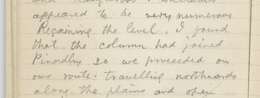 appeared to be very numerous
Regaining the level. I found
that the column had joined
so we proceeded on
our route. travelling northwards
along the plains and open